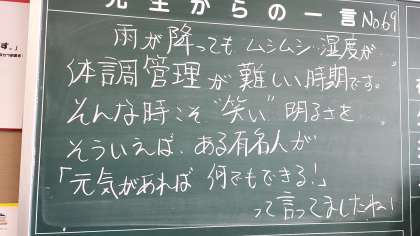 先生からの一言 No.69
雨が降っても ムシムシ 湿度が…
体調管理が難しい時期です。
そんな時こそ"笑い"明るさを
そういえば、ある有名人が
「元気があれば 何でもできる!」
って言ってましたね!
す。」